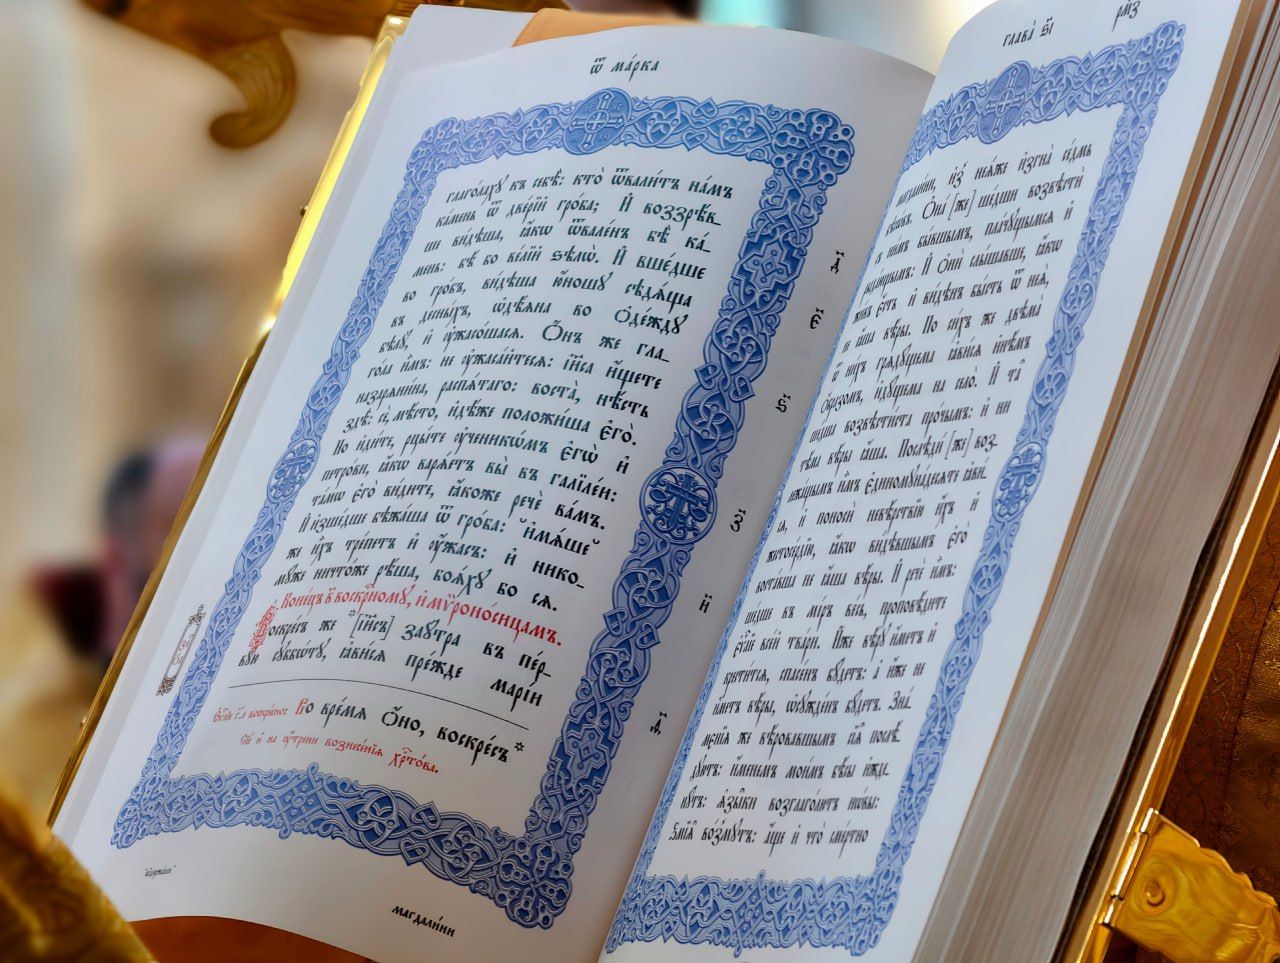 Ѿ ма́рка
глаго́лахꙋ къ себѣ̀: кто̀ ѿвали́тъ на́мъ
ка́мень ѿ две́рїй гро́ба; И҆ воззрѣ́в_
ше ви́дѣша, ꙗ҆́кѡ ѿвале́нъ бѣ̀ ка́_
мень: бѣ́ бо ве́лїй ѕѣлѡ̀. И҆ вше́дше
во гро́бъ, ви́дѣша ю҆́ношꙋ сѣдѧ́ща
въ десны́хъ, ѡ҆дѣ́ѧна во ѻ҆де́ждꙋ
бѣ́лꙋ, и҆ ᲂу҆жасо́шасѧ. Ѻ҆́нъ же гла_
го́ла и҆̀мъ: не ᲂу҆жаса́йтесѧ: і҆и҃са и҆́щете
назарѧни́на, распѧ́таго: воста̀, нѣ́сть
здѣ̀: сѐ, мѣ́сто, и҆дѣ́же положи́ша є҆го̀.
Но и҆ди́те, рцы́те ᲂу҆ченикѡ́мъ є҆гѡ̀ и҆
петро́ви, ꙗ҆́кѡ варѧ́етъ вы̀ въ галїле́и:
та́мѡ є҆го̀ ви́дите, ꙗ҆́коже речѐ ва́мъ.
И҆ и҆зше́дше бѣжа́ша ѿ гро́ба: и҆мѧ́ше
же и҆̀хъ тре́петъ и҆ ᲂу҆́жасъ: и҆ нико_
мꙋ́же ничто́же рѣ́ша, боѧ́хꙋ бо сѧ.
Коне́цъ в҃ воскр҇номꙋ, и҆ мѷроно́сицамъ.
Воскре́съ же * [і҆и҃съ] заꙋ́тра въ пе́р_
вꙋю сꙋббѡ́тꙋ, ꙗ҆ви́сѧ пре́жде марі́и
Є҆ѵⷢ҇лїе г҃ воскре́сно: Во вре́мѧ ѻ҆́но, воскре́съ *
и҆ на ᲂу҆́трени вознесе́нїѧ хр҇то́ва.
магдали́ни
д҃і
є҃і
ѕ҃і
з҃і
и҃і
глава̀ ѕ҃і
рм҃з
магдали́ни, и҆з̾ неѧ́же и҆згна̀ се́дмь
бѣсѡ́въ. Ѻ҆на́ [же] ше́дши возвѣстѝ
съ ни́мъ бы́вшымъ, пла́чꙋщымсѧ и҆
рыда́ющымъ: И҆ ѻ҆нѝ слы́шавше, ꙗ҆́кѡ
жи́въ є҆́сть и҆ ви́дѣнъ бы́сть ѿ неѧ̀,
не ꙗ҆́ша вѣ́ры. По си́хъ же двѣма̀
ѿ ни́хъ грѧдꙋ́щема ꙗ҆ви́сѧ и҆нѣ́мъ
ѡ҆́бразомъ, и҆дꙋ́щема на село̀. И҆ та̑
шє́дша возвѣсти́ста про́чымъ: и҆ ни
тѣ́ма вѣ́ры ꙗ҆́ша. Послѣди́ [же] воз_
лежа́щымъ и҆̀мъ є҆диномꙋна́десѧте ꙗ҆ви_
сѧ, и҆ поносѝ невѣ́рствїю и҆́хъ и҆
жестосе́рдїю, ꙗ҆́кѡ ви́дѣвшымъ є҆го̀
воста́вша не ꙗ҆́ша вѣ́ры. И҆ речѐ и҆̀мъ:
ше́дше въ мі́ръ ве́сь, проповѣ́дите
є҆ѵⷢ҇лїе все́й тва́ри. И҆́же вѣ́рꙋ и҆́метъ и҆
крести́тсѧ, спасе́нъ бꙋ́детъ: а҆ и҆́же не
и҆́метъ вѣ́ры, ѡ҆сꙋжде́нъ бꙋ́детъ. Зна́_
мєнїѧ же вѣ́ровавшымъ сїѧ̑ послѣ́_
дꙋютъ: и҆́менемъ мои́мъ бѣ́сы и҆жде_
нꙋ́тъ: ꙗ҆зы̑ки возглаго́лютъ нѡ́вы:
Змїѧ̑ во́змꙋтъ: а҆́ще и҆ что̀ сме́ртно